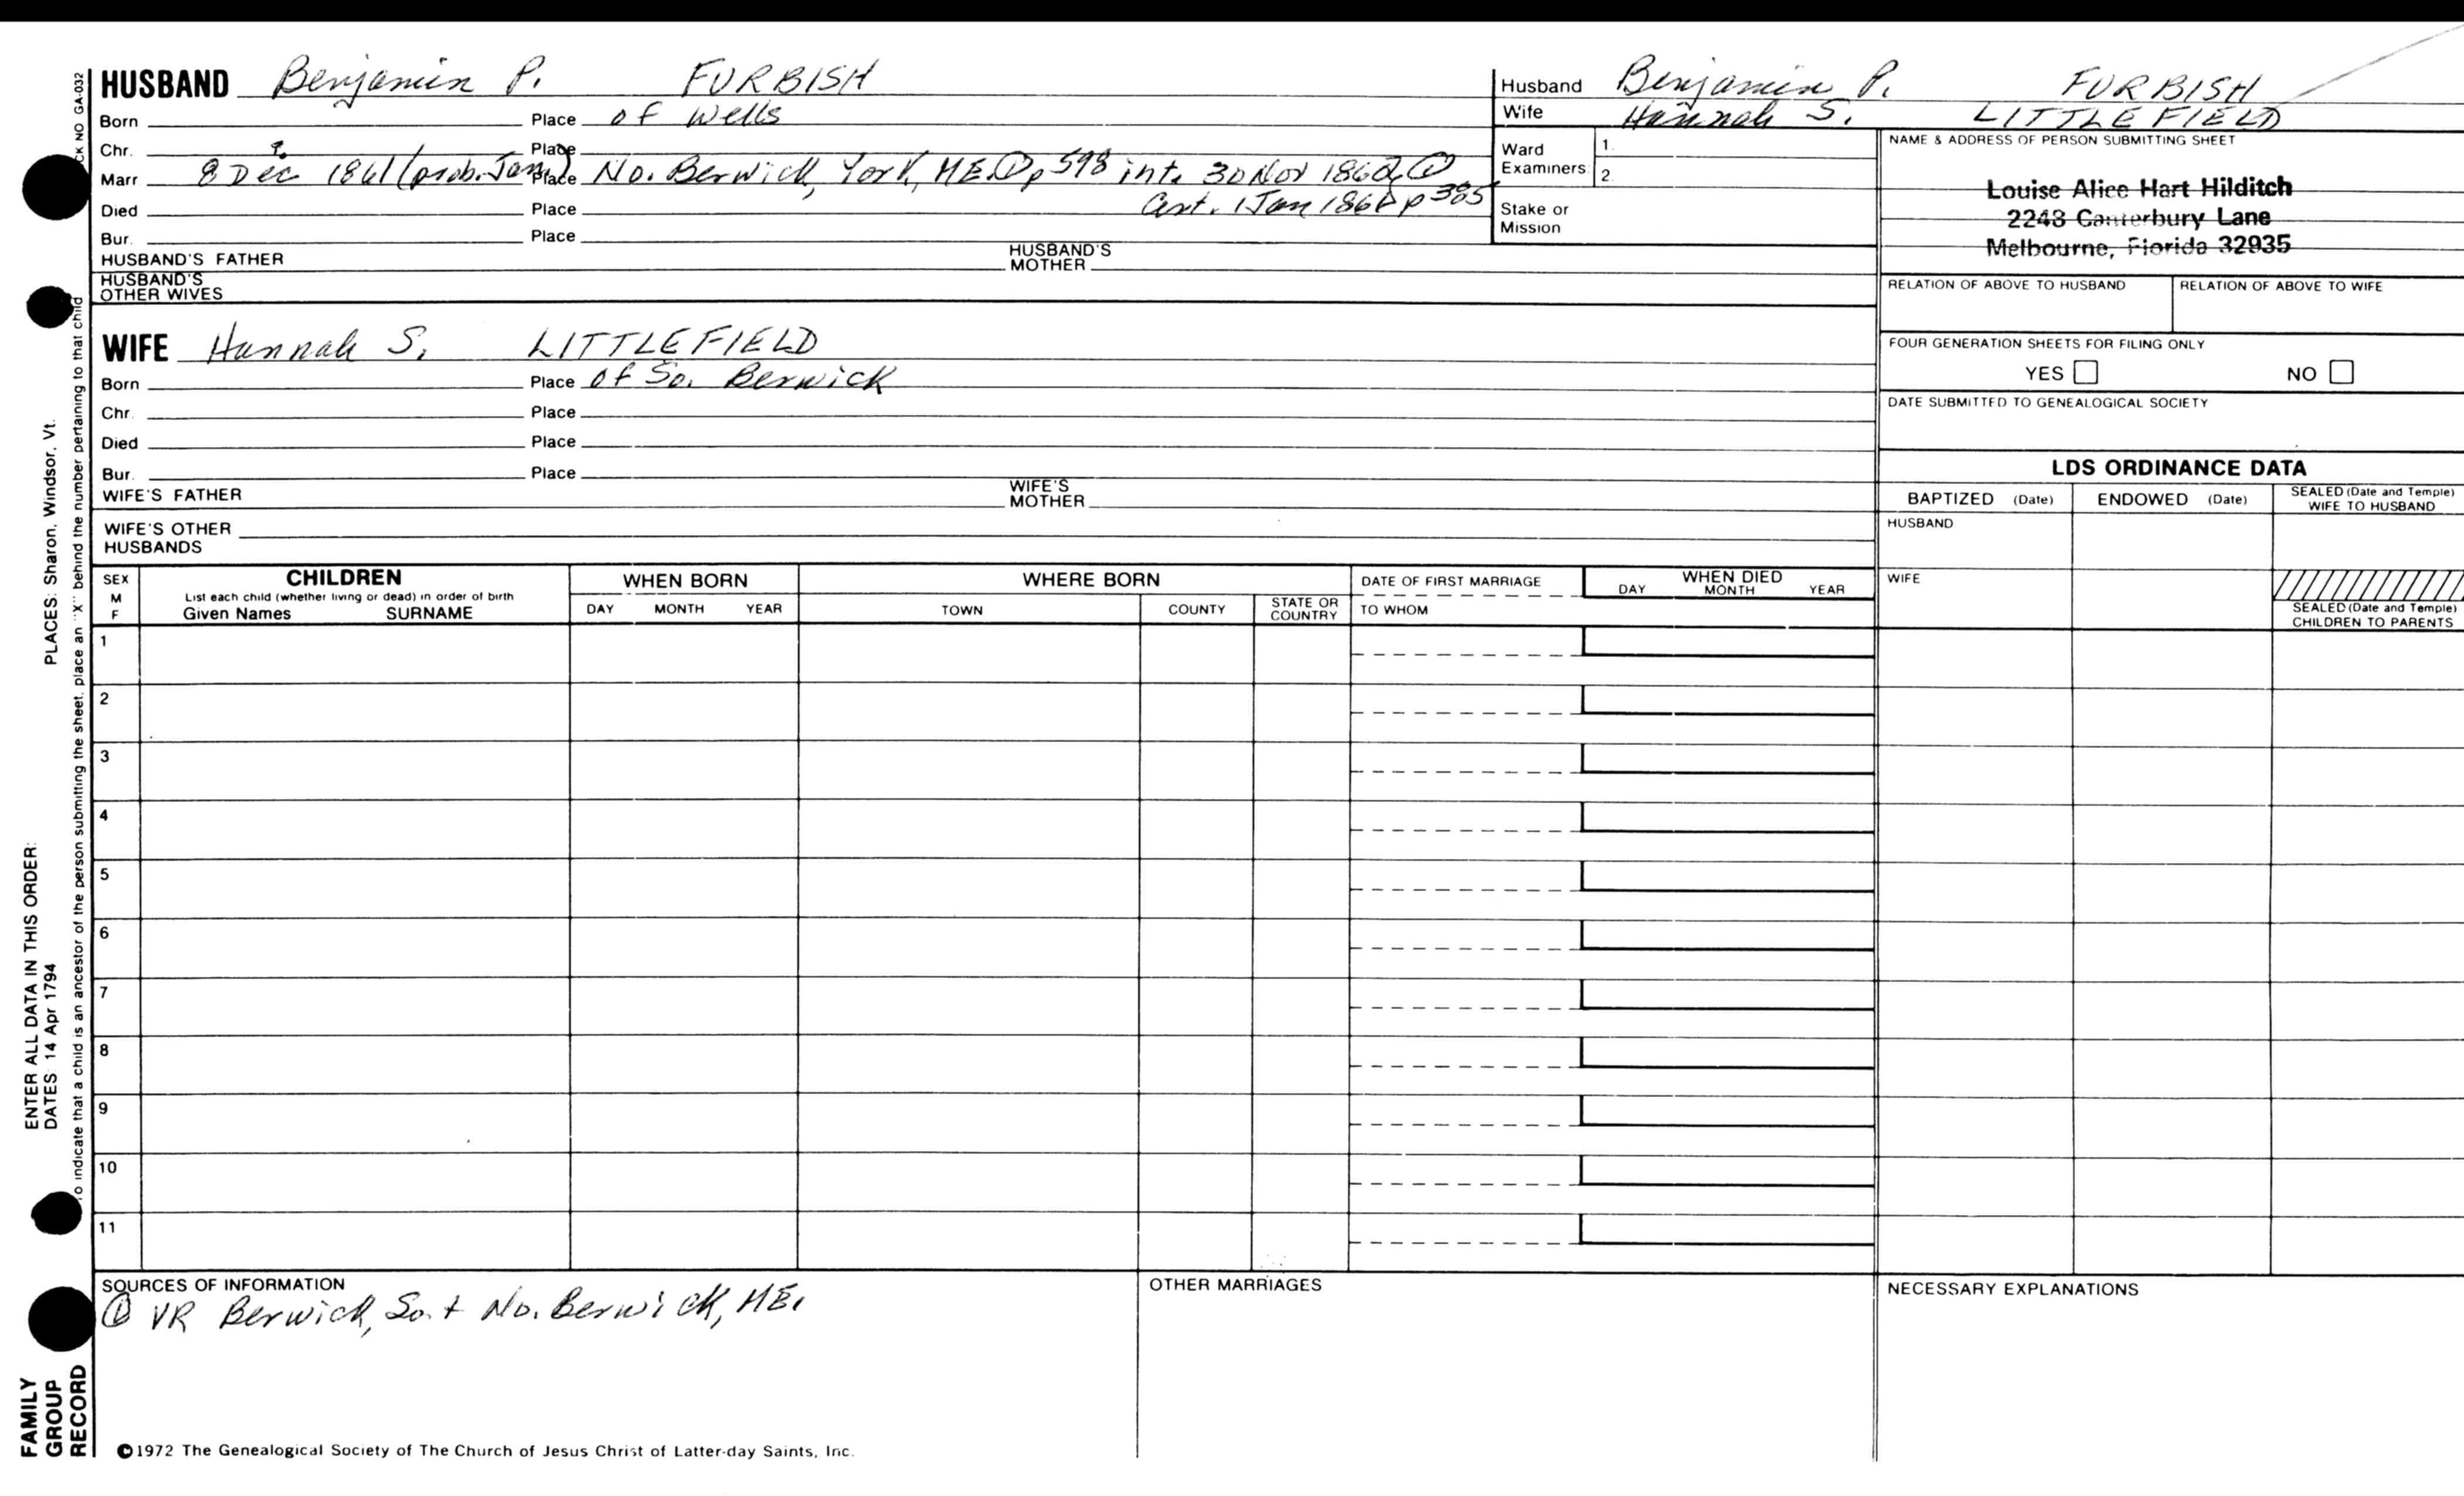 HUSBAND Benjamin P. FURBISH
Born Place of Wells
Chr. ? Place
Marr 8 Dec 1861 (prob. Jan.) Place No. Berwick, York, ME. ① p 598 int. 30 Nov 1862 ①
Died Place Cert. 1 Jan 186 p 385
Bur. Place
HUSBAND'S FATHER HUSBAND'S MOTHER
HUSBAND'S OTHER WIVES
WIFE Hannah S. LITTLEFIELD
Born Place of So. Berwick
Chr. Place
Died Place
Bur. Place
WIFE'S FATHER WIFE'S MOTHER
WIFE'S OTHER HUSBANDS
Husband Benjamin P. FURBISH
Wife Hannah S. LITTLEFIELD
Ward Examiners 1. 2.
Stake or Mission
NAME & ADDRESS OF PERSON SUBMITTING SHEET
Louise Alice Hart Hilditch
2243 Canterbury Lane
Melbourne, Florida 32935
RELATION OF ABOVE TO HUSBAND RELATION OF ABOVE TO WIFE
FOUR GENERATION SHEETS FOR FILING ONLY
YES NO
DATE SUBMITTED TO GENEALOGICAL SOCIETY
LDS ORDINANCE DATA
BAPTIZED (Date) ENDOWED (Date) SEALED (Date and Temple) WIFE TO HUSBAND
HUSBAND
WIFE
SEALED (Date and Temple) CHILDREN TO PARENTS
SEX M F
CHILDREN
List each child (whether living or dead) in order of birth
Given Names SURNAME
WHEN BORN
DAY MONTH YEAR
WHERE BORN
TOWN COUNTY STATE OR COUNTRY
DATE OF FIRST MARRIAGE
TO WHOM
WHEN DIED
DAY MONTH YEAR
1
2
3
4
5
6
7
8
9
10
11
SOURCES OF INFORMATION
① VR Berwick, So. + No. Berwick, ME.
OTHER MARRIAGES
NECESSARY EXPLANATIONS
©1972 The Genealogical Society of The Church of Jesus Christ of Latter-day Saints, Inc.
FAMILY GROUP RECORD
ENTER ALL DATA IN THIS ORDER:
DATES 14 Apr 1794
PLACES: Sharon, Windsor, Vt.
To indicate that a child is an ancestor of the person submitting the sheet, place an "X" behind the number pertaining to that child
CK NO GA-032